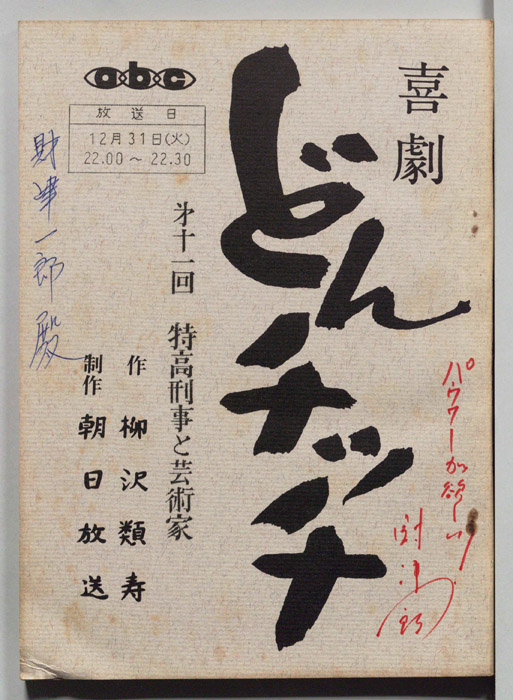 喜劇
どんチッチ
abc
放送日
12月31日(火)
22.00～22.30
才十一回 特高刑事と芸術家
作 柳沢類寿
制作 朝日放送
財津一郎殿
パウワーが欲しい
財津一郎